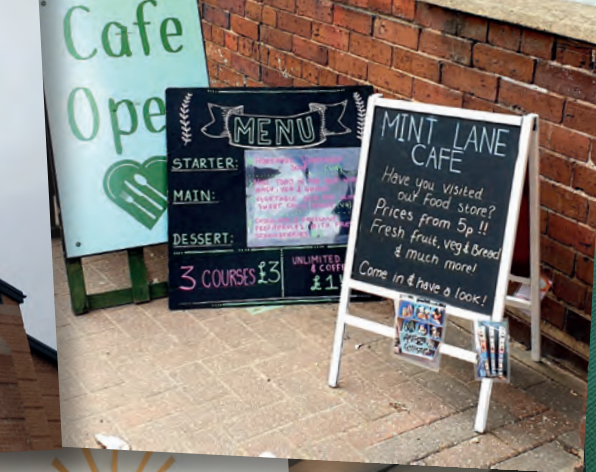 Cafe
Ope
MENU
STARTER:
MAIN:
DESSERT:
3 COURSES £3
UNLIMITED
& COFF
£1
MINT LANE
CAFÉ
Have you visited
our food store?
Prices from 5p !!
Fresh fruit, veg & Bread
& much more!
Come in & have a look!